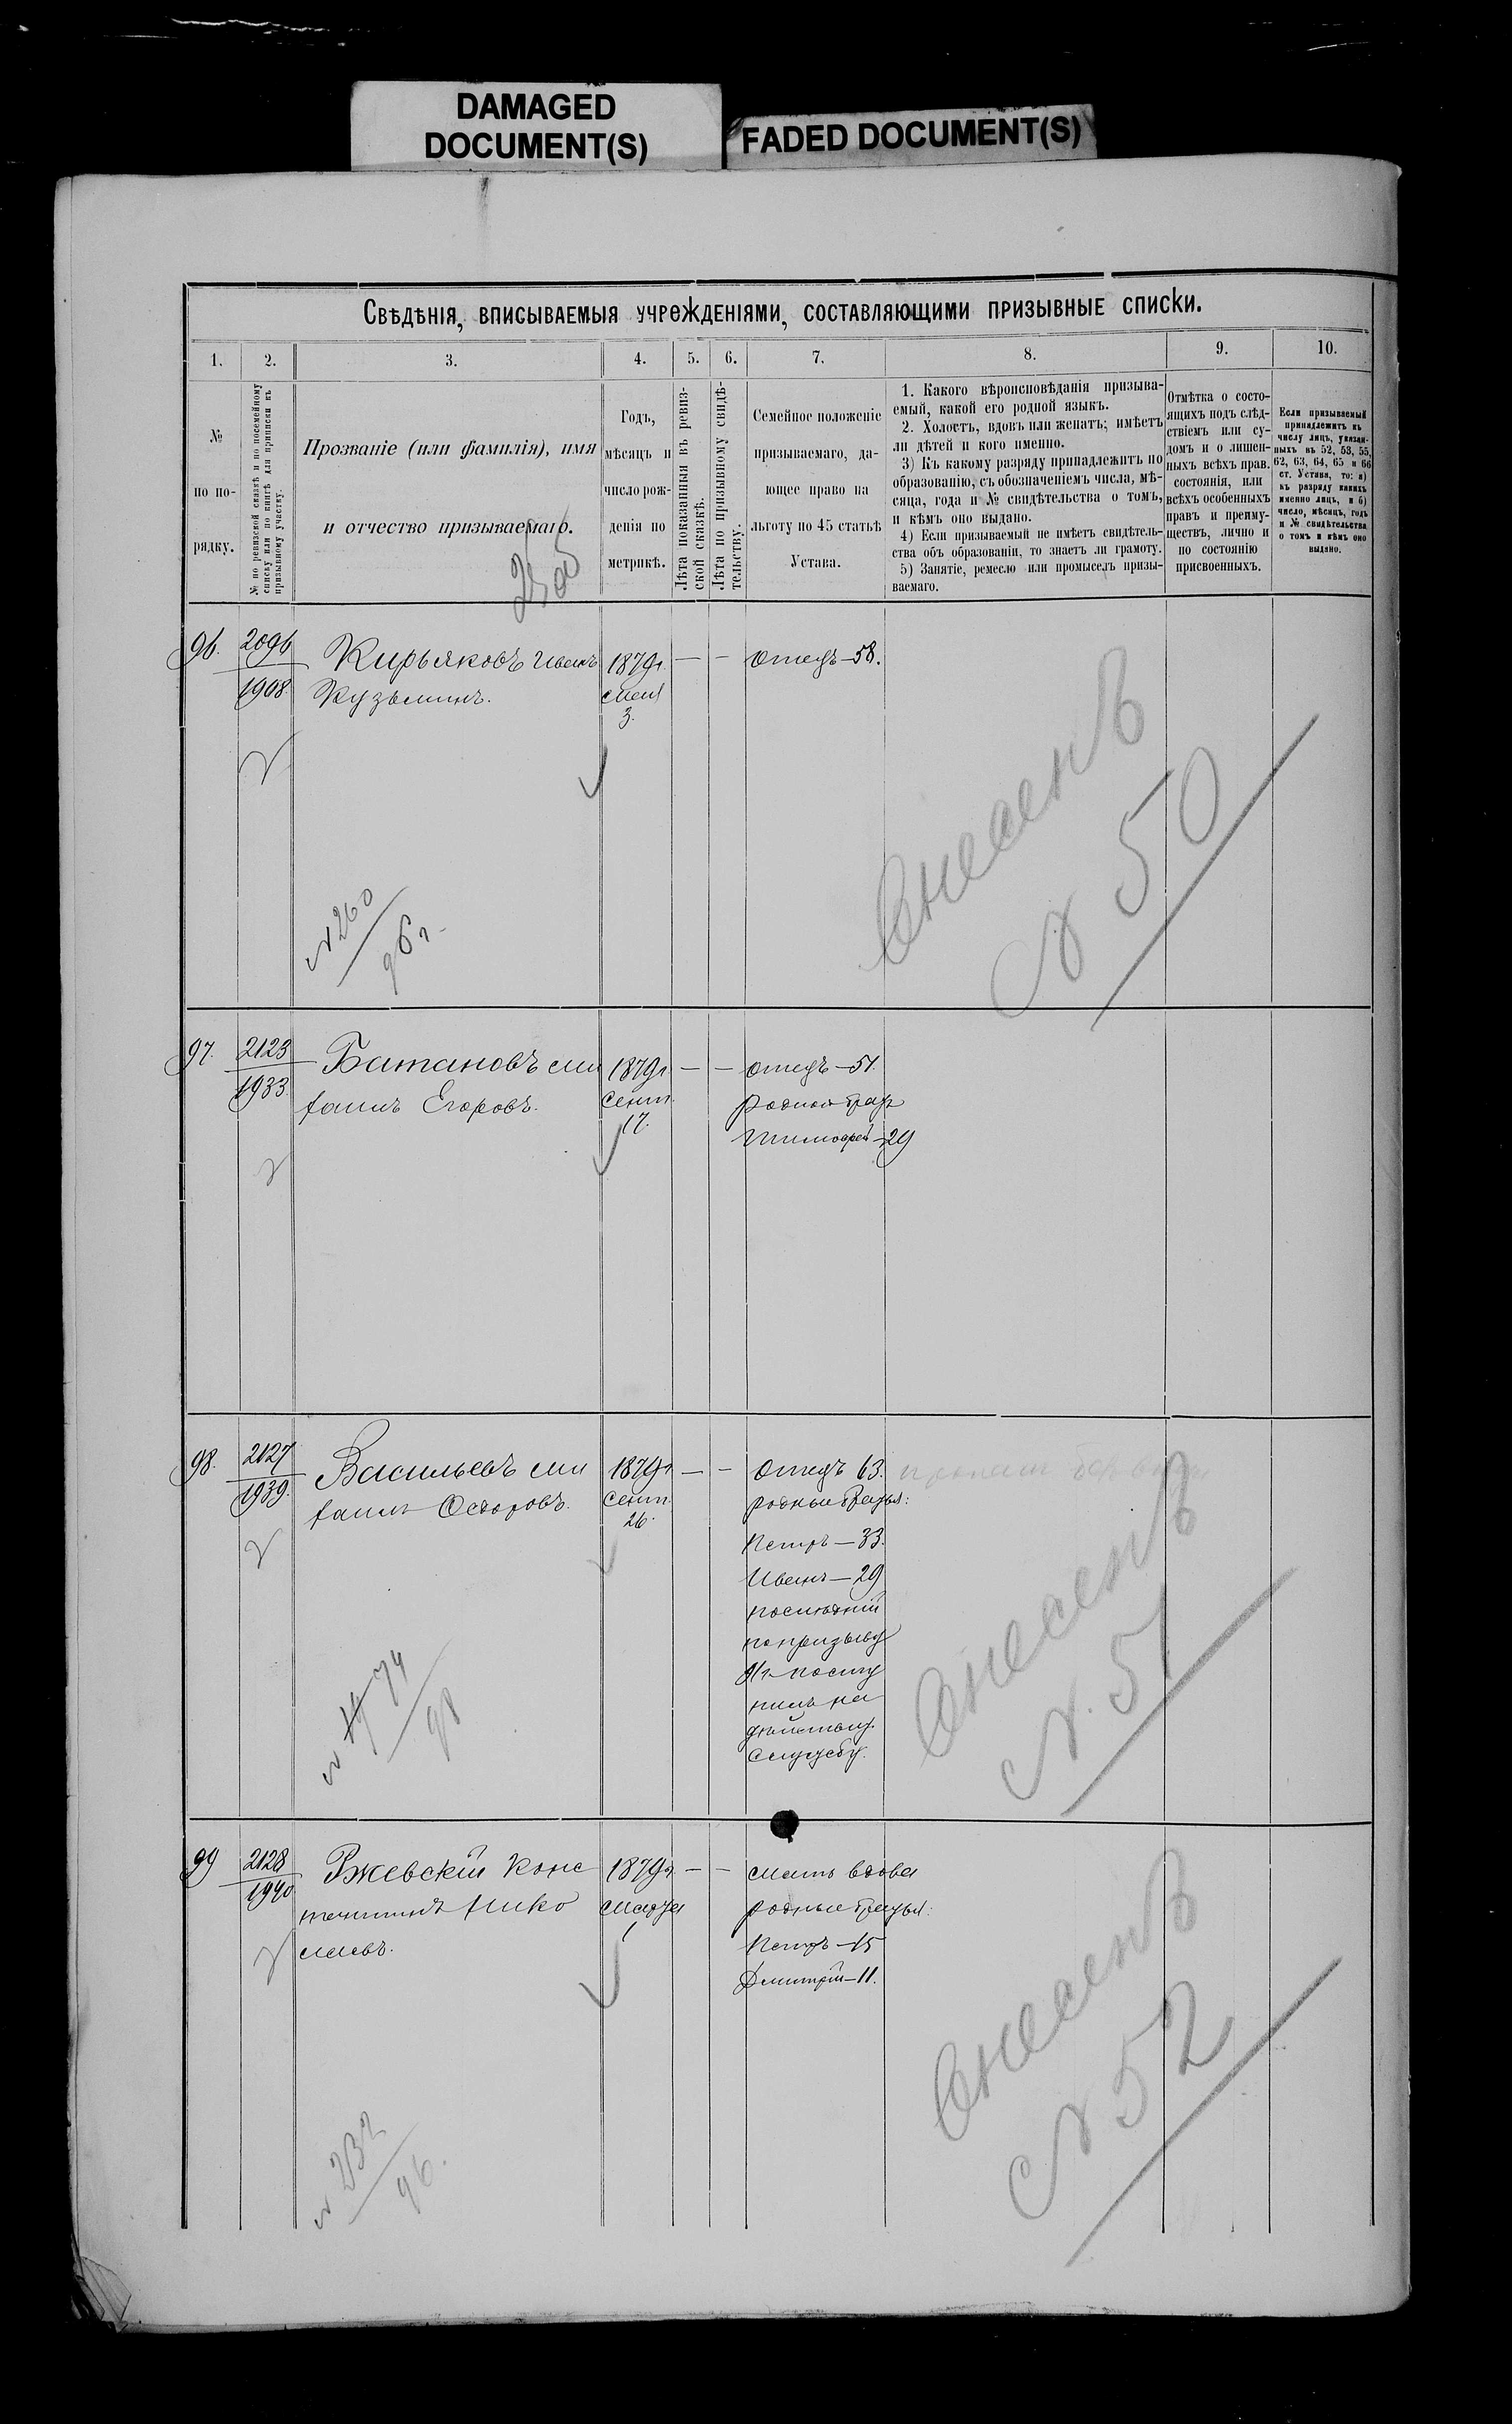 DAMAGED
DOCUMENT(S)
FADED DOCUMENT(S)
Свѣдѣнія, вписываемыя учрежденіями, составляющими призывные списки.
1. 2. 3. 4. 5. 6. 7. 8. 9. 10.
№
по по-
рядку.
№ по ревизской сказкѣ и по посемейному
списку или по книгѣ для приписки къ
призывному участку.
Прозваніе (или фамилія), имя
и отчество призываемаго.
Годъ,
мѣсяцъ и
число рож-
денія по
метрикѣ.
Лѣта показанныя въ ревиз-
ской сказкѣ.
Лѣта по призывному свидѣ-
тельству.
Семейное положеніе
призываемаго, да-
ющее право на
льготу по 45 статьѣ
Устава.
1. Какого вѣроисповѣданія призыва-
емый, какой его родной языкъ.
2. Холостъ, вдовъ или женатъ; имѣетъ
ли дѣтей и кого именно.
3) Къ какому разряду принадлежитъ по
образованію, съ обозначеніемъ числа, мѣ-
сяца, года и № свидѣтельства о томъ,
и кѣмъ оно выдано.
4) Если призываемый не имѣетъ свидѣтель-
ства объ образованіи, то знаетъ ли грамоту.
5) Занятіе, ремесло или промыселъ призы-
ваемаго.
Отмѣтка о состо-
ящихъ подъ слѣд-
ствіемъ или су-
домъ и о лишен-
ныхъ всѣхъ прав.
состоянія, или
всѣхъ особенныхъ
правъ и преиму-
ществъ, лично и
по состоянію
присвоенныхъ.
Если призываемый
принадлежитъ къ
числу лицъ, указан-
ныхъ въ 52, 53, 55,
62, 63, 64, 65 и 66
ст. Устава, то: а)
къ разряду какихъ
именно лицъ, и б)
число, мѣсяцъ, годъ
и № свидѣтельства
о томъ и кѣмъ оно
выдано.
96. 2096 Кирьяковъ Иванъ 1879г. — — отецъ—58.
1908. Кузьминъ. Мая
3.
Внесенъ
№ 50
№ 260
96 г.
97. 2123 Батановъ Ми 1879г. — — отецъ—51.
1933. хаилъ Егоровъ. Сент. родной братъ
17. Тимофей—29
98. 2127 Васильевъ Ми 1879г. — — Отецъ 63.
1939. хаилъ Ѳедоровъ. Сент. родные братья:
26.
Петръ—33.
Иванъ—29
послѣдній
по призыву
91г. посту
пилъ на
дѣйствит.
службу.
Внесенъ
№. 51
№ 74
98
99 2128 Ржевскій Конс 1879г. — — Мать вдова
1940. тантинъ Нико Марта родные братья:
лаевъ. 1 Петръ—15
Дмитрій—11.
Внесенъ
№ 52
№ 232
96.